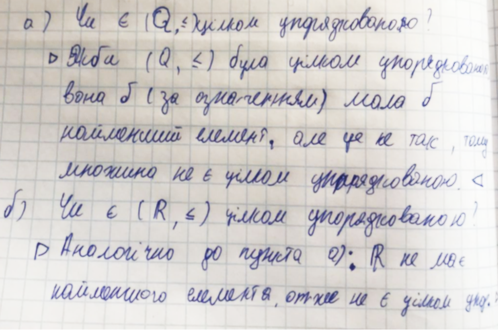 а) Чи є (Q, ≤) цілком упорядкованою?
▷ Якби (Q, ≤) була цілком упорядкованою
вона б (за означенням) мала б
найменший елемент, але це не так, тому
множина не є цілком упорядкованою. ◁
б) Чи є (R, ≤) цілком упорядкованою?
▷ Аналогічно до пункта а): R не має
найменшого елемента, отже не є цілком упор.